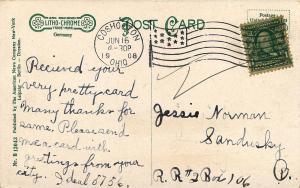 LITHO-CHROME
TRADE MARK
Germany
POST CARD
COSHOCTON
JUN 16
-30P
1908
OHIO
Postage
No. B 12682 Published by The American News Company, New York
Leipzig - Berlin - Dresden
Recieved your
very pretty card
Many thanks for
same. Please send
me a card with
greetings from your
city. I deal 5756.
Jessie Norman
Sandusky
O.
R.R#2 Box 106